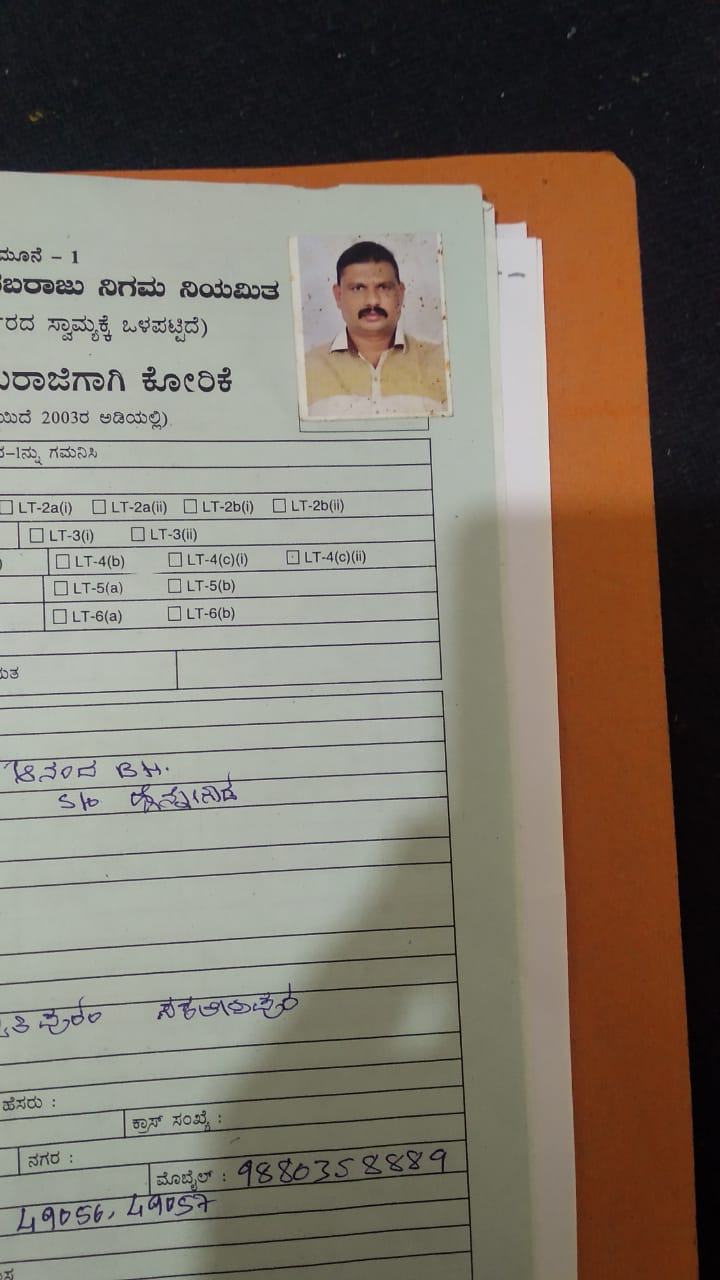 ಮೂನೆ – 1
ಬರಾಜು ನಿಗಮ ನಿಯಮಿತ
ರದ ಸ್ವಾಮ್ಯಕ್ಕೆ ಒಳಪಟ್ಟಿದೆ)
ರಾಜಿಗಾಗಿ ಕೋರಿಕೆ
ಯಿದೆ 2003ರ ಅಡಿಯಲ್ಲಿ)
-1ನ್ನು ಗಮನಿಸಿ
LT-2a(i) LT-2a(ii) LT-2b(i) LT-2b(ii)
LT-3(i) LT-3(ii)
) LT-4(b) LT-4(c)(i) LT-4(c)(ii)
LT-5(a) LT-5(b)
LT-6(a) LT-6(b)
ಆನಂದ BH.
S/o
ಹೆಸರು :
ಕ್ರಾಸ್ ಸಂಖ್ಯೆ :
ನಗರ :
ಮೊಬೈಲ್ : 9880358889
49056, 49057